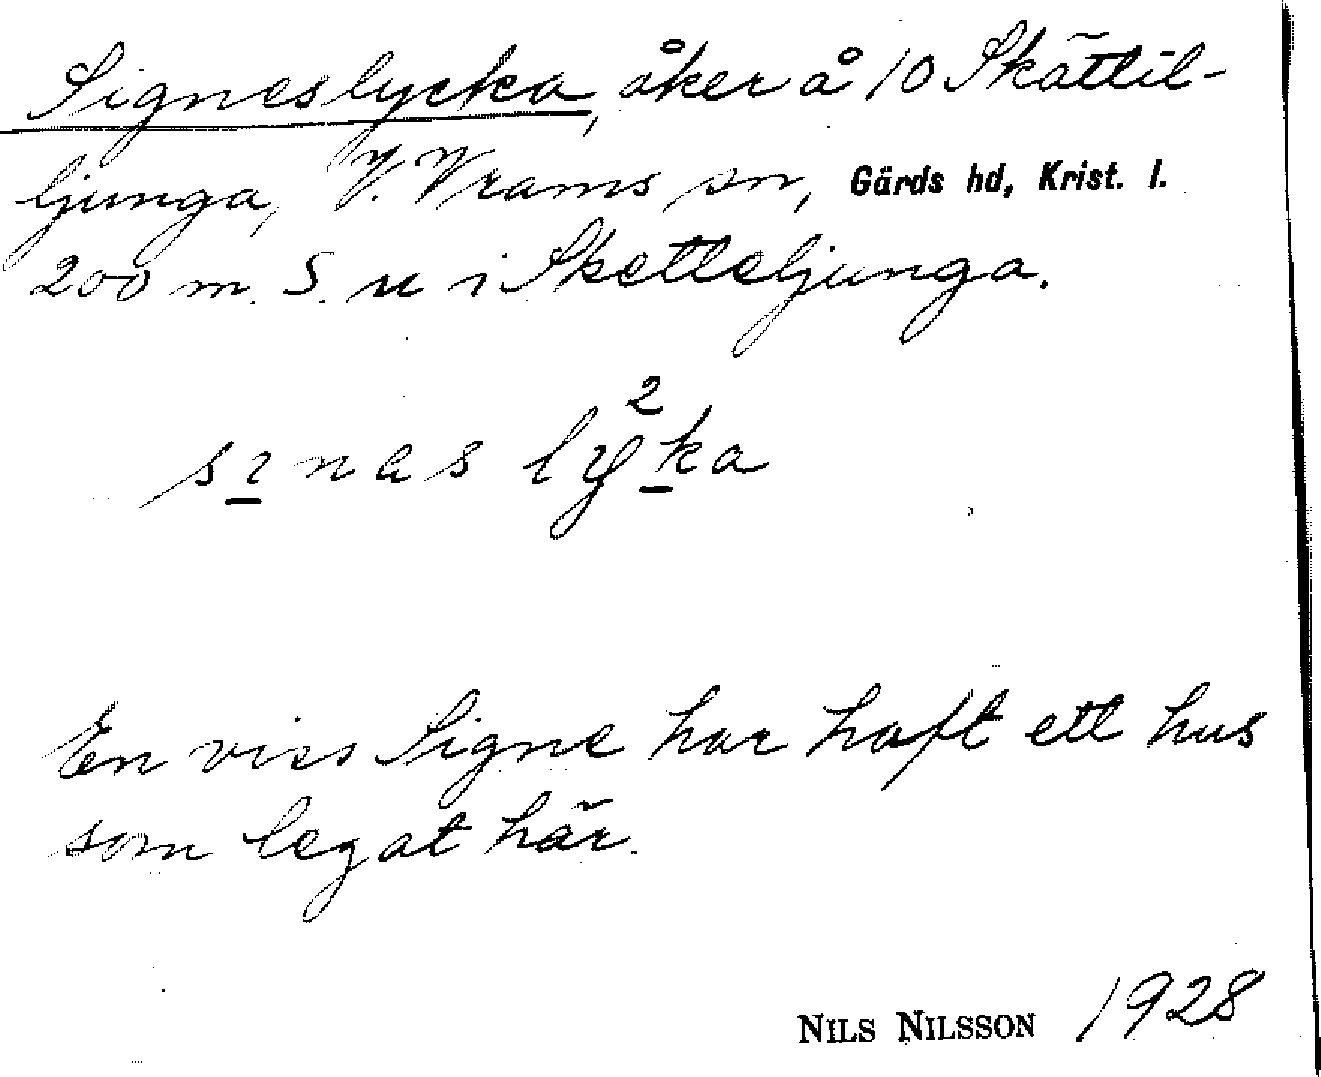 Signeslycka, åker å 10 Skättil-
ljunga, V. Vrams sn, Gärds hd, Krist. l.
200 m. S. u i Skettleljunga.
sınas ly²ka
En viss Signe har haft ett hus
som legat här.
NILS NILSSON 1928